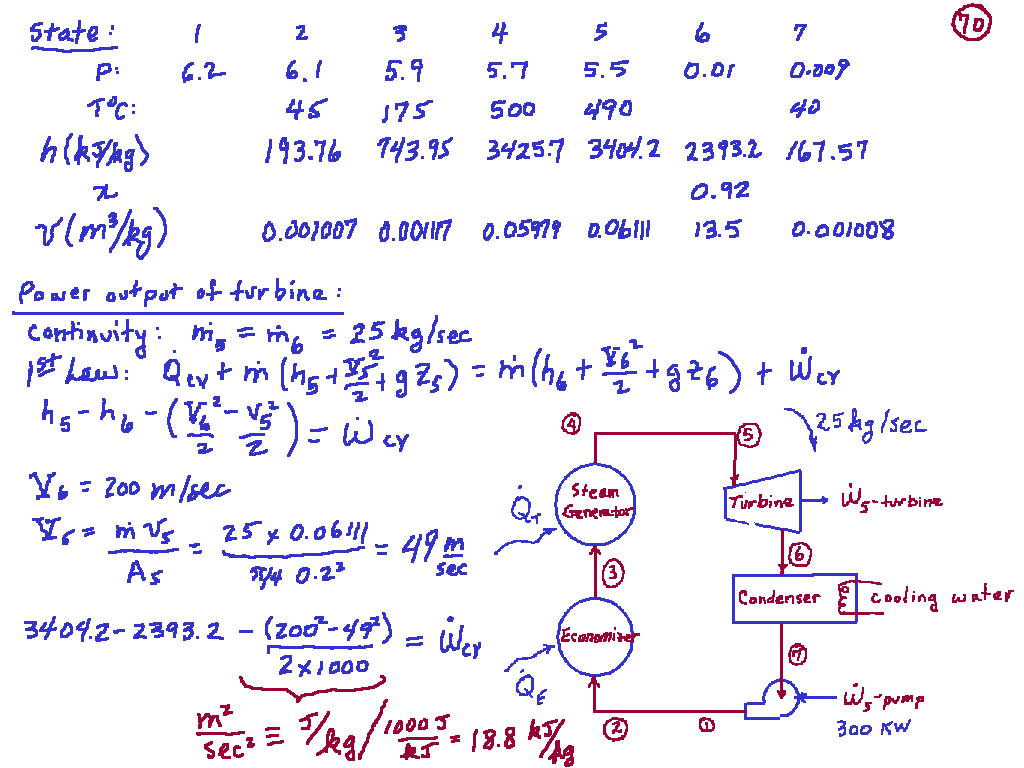 70
State: 1 2 3 4 5 6 7
P: 6.2 6.1 5.9 5.7 5.5 0.01 0.009
T°C: 45 175 500 490 40
h(kJ/kg) 193.76 743.95 3425.7 3404.2 2393.2 167.57
x 0.92
v(m³/kg) 0.001007 0.001117 0.05979 0.06111 13.5 0.001008
Power output of turbine:
Continuity: ṁ₅ = ṁ₆ = 25 kg/sec
1st Law: Q̇cv + ṁ(h₅ + V₅²/2 + gZ₅) = ṁ(h₆ + V₆²/2 + gZ₆) + Ẇcv
h₅ - h₆ - (V₆²/2 - V₅²/2) = Ẇcv
V₆ = 200 m/sec
V₅ = ṁv₅/A₅ = 25 x 0.06111 / π/4 0.2² = 49 m/sec
3404.2 - 2393.2 - (200² - 49²)/2x1000 = Ẇcv
m²/sec² ≡ J/kg / 1000J/kJ = 18.8 kJ/kg
④ ⑤ 25 kg/sec
Steam Generator
Q̇T
Turbine
Ẇs-turbine
③ ⑥
Condenser
cooling water
Economizer
Q̇E
⑦
Ẇs-pump
300 KW
② ①